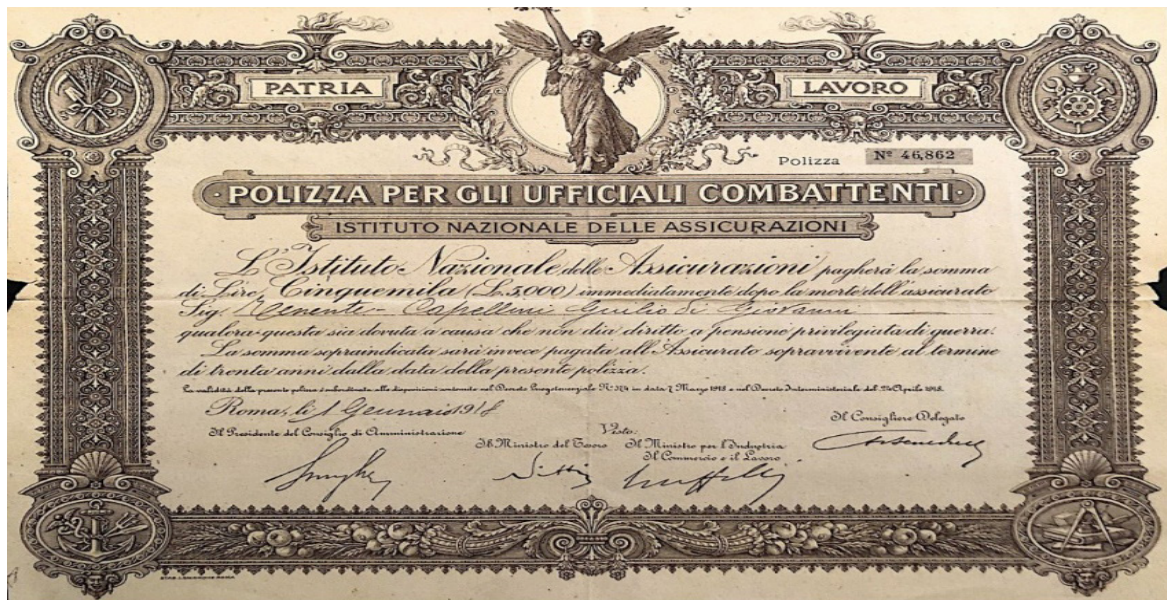 PATRIA
LAVORO
Polizza Nº 46,862
POLIZZA PER GLI UFFICIALI COMBATTENTI
ISTITUTO NAZIONALE DELLE ASSICURAZIONI
L'Istituto Nazionale delle Assicurazioni pagherà la somma
di Lire Cinquemila (L. 5.000) immediatamente dopo la morte dell'assicurato
Sig. Tenente - Capellini Giulio di Giovanni
qualora questa sia dovuta a causa che non dia diritto a pensione privilegiata di guerra.
La somma sopraindicata sarà invece pagata all'Assicurato sopravvivente al termine
di trenta anni dalla data della presente polizza.
La validità della presente polizza è subordinata alle disposizioni contenute nel Decreto Luogotenenziale Nº 374 in data 7 Marzo 1918 e nel Decreto Interministeriale del Aprile 1918.
Roma, li 1 Gennaio 1918
Il Consigliere Delegato
Il Presidente del Consiglio di Amministrazione
Visto:
Il Ministro del Tesoro
Il Ministro per l'Industria
Il Commercio e il Lavoro